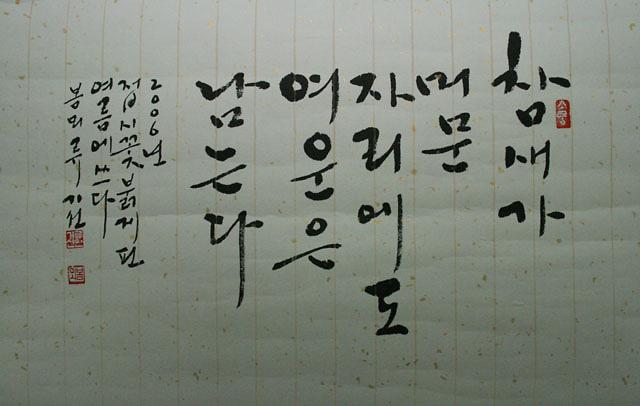 참새가
머문
자리에도
여운은
남는다
2006년
접시꽃 붉게 핀
여름에 쓰다
봉의루 기선